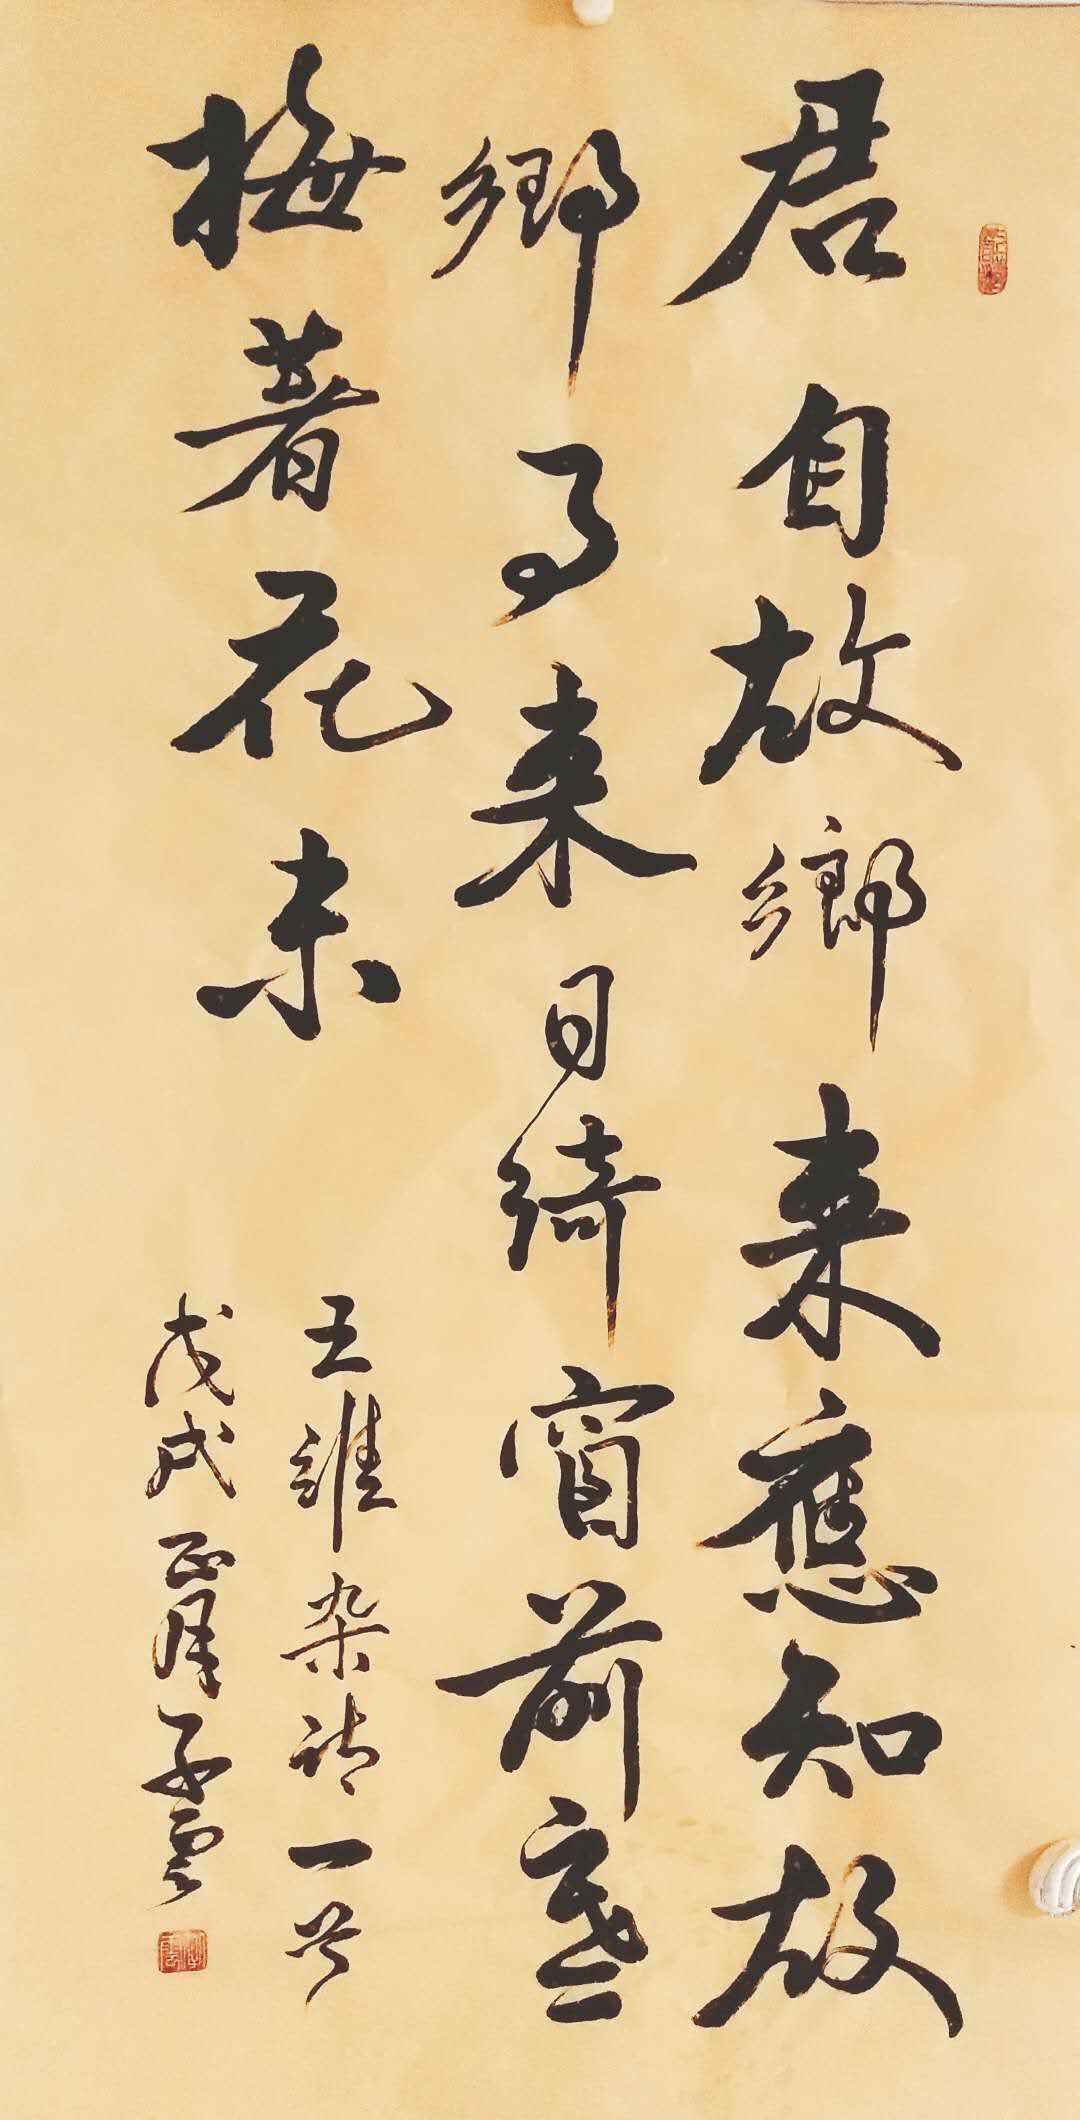 君自故鄉來應知故
鄉事來日綺窗前寒
梅著花未
王維雜詩一首
戊戌正月子雲